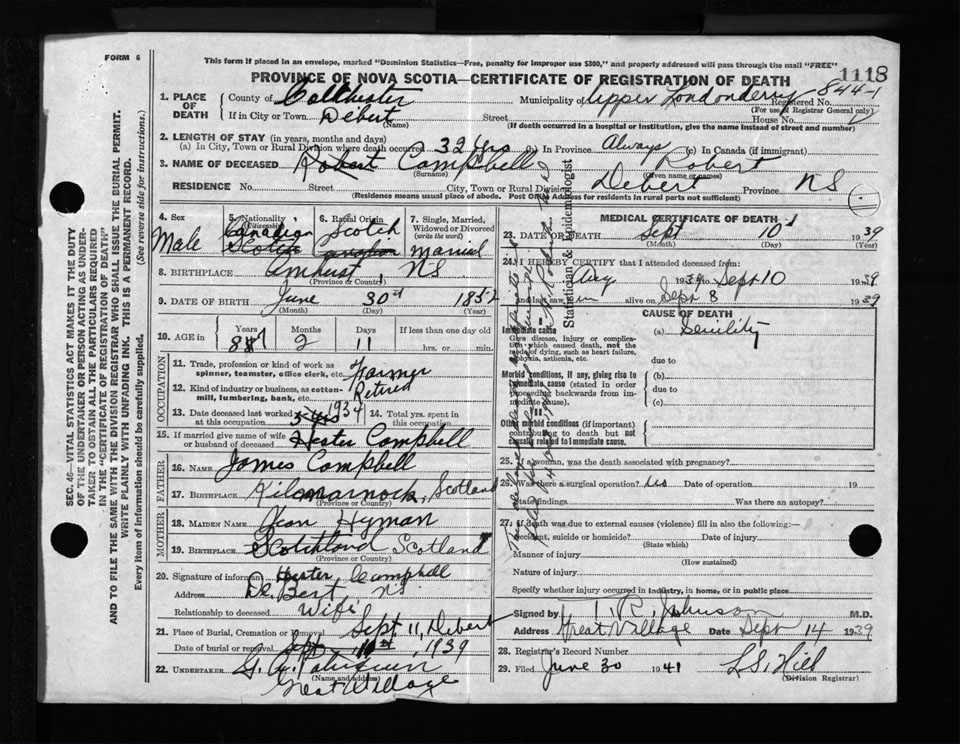 FORM 6
This form if placed in an envelope, marked "Dominion Statistics—Free, penalty for improper use $300," and properly addressed will pass through the mail "FREE"
PROVINCE OF NOVA SCOTIA—CERTIFICATE OF REGISTRATION OF DEATH
1118
1. PLACE OF DEATH
County of Colchester Municipality of Upper Londonderry Registered No. 844-1
(For use of Registrar General only)
If in City or Town Debert Street House No.
(Name) (If death occurred in a hospital or institution, give the name instead of street and number)
2. LENGTH OF STAY (in years, months and days)
(a) In City, Town or Rural Division where death occurred 32 yrs (b) In Province Always (c) In Canada (if immigrant)
3. NAME OF DECEASED Robert Campbell Robert
(Surname) (Given name or names)
RESIDENCE No. Street City, Town or Rural Division Debert Province NS
(Residence means usual place of abode. Post Office Address for residents in rural parts not sufficient)
SEC. 46—VITAL STATISTICS ACT MAKES IT THE DUTY
OF THE UNDERTAKER OR PERSON ACTING AS UNDER-
TAKER TO OBTAIN ALL THE PARTICULARS REQUIRED
IN THE "CERTIFICATE OF REGISTRATION OF DEATH"
AND TO FILE THE SAME WITH THE DIVISION REGISTRAR WHO SHALL ISSUE THE BURIAL PERMIT.
WRITE PLAINLY WITH UNFADING INK. THIS IS A PERMANENT RECORD.
Every item of information should be carefully supplied.
(See reverse side for instructions.)
4. Sex Male
5. Nationality (Citizenship) Canadian Scotch
6. Racial Origin Scotch Canadian
7. Single, Married, Widowed or Divorced (write the word) Married
8. BIRTHPLACE Amherst, NS
(Province or Country)
9. DATE OF BIRTH June 30th 1852
(Month) (Day) (Year)
10. AGE in Years Months Days If less than one day old
87 2 11 hrs. or min.
OCCUPATION
11. Trade, profession or kind of work as spinner, teamster, office clerk, etc. Farmer
12. Kind of industry or business, as cotton-mill, lumbering, bank, etc. Retired
13. Date deceased last worked at this occupation 1934
14. Total yrs. spent in this occupation
15. If married give name of wife or husband of deceased Hester Campbell
FATHER
16. NAME James Campbell
17. BIRTHPLACE Kilmarnock, Scotland
(Province or Country)
MOTHER
18. MAIDEN NAME Jean Hyman
19. BIRTHPLACE Scotchland Scotland
(Province or Country)
20. Signature of informant Hester Campbell
Address De Bert NS
Relationship to deceased Wife
21. Place of Burial, Cremation or Removal Sept 11, Debert
Date of burial or removal Sept 1939
22. UNDERTAKER
(Name and address)
Great Village
MEDICAL CERTIFICATE OF DEATH
23. DATE OF DEATH Sept 10 1939
(Month) (Day) (Year)
24. I HEREBY CERTIFY that I attended deceased from:
Aug 1939 Sept 10 1939
and last saw him alive on Sept 8 1939
CAUSE OF DEATH
Immediate cause (a) Senility
Give disease, injury or complication which caused death, not the mode of dying, such as heart failure, asphyxia, asthenia, etc. due to
Morbid conditions, if any, giving rise to immediate cause (stated in order proceeding backwards from immediate cause). (b)
due to
(c)
Other morbid conditions (if important) contributing to death but not causally related to immediate cause.
Statistician & Epidemiologist
25. If a woman, was the death associated with pregnancy?
26. Was there a surgical operation? No Date of operation 19
State findings Was there an autopsy?
27. If death was due to external causes (violence) fill in also the following:—
Accident, suicide or homicide? Date of injury 19
(State which)
Manner of injury
(How sustained)
Nature of injury
Specify whether injury occurred in industry, in home, or in public place
Signed by T. R. Johnson M.D.
Address Great Village Date Sept 14 1939
28. Registrar's Record Number
29. Filed June 30 1941 L.S. Hill
(Division Registrar)